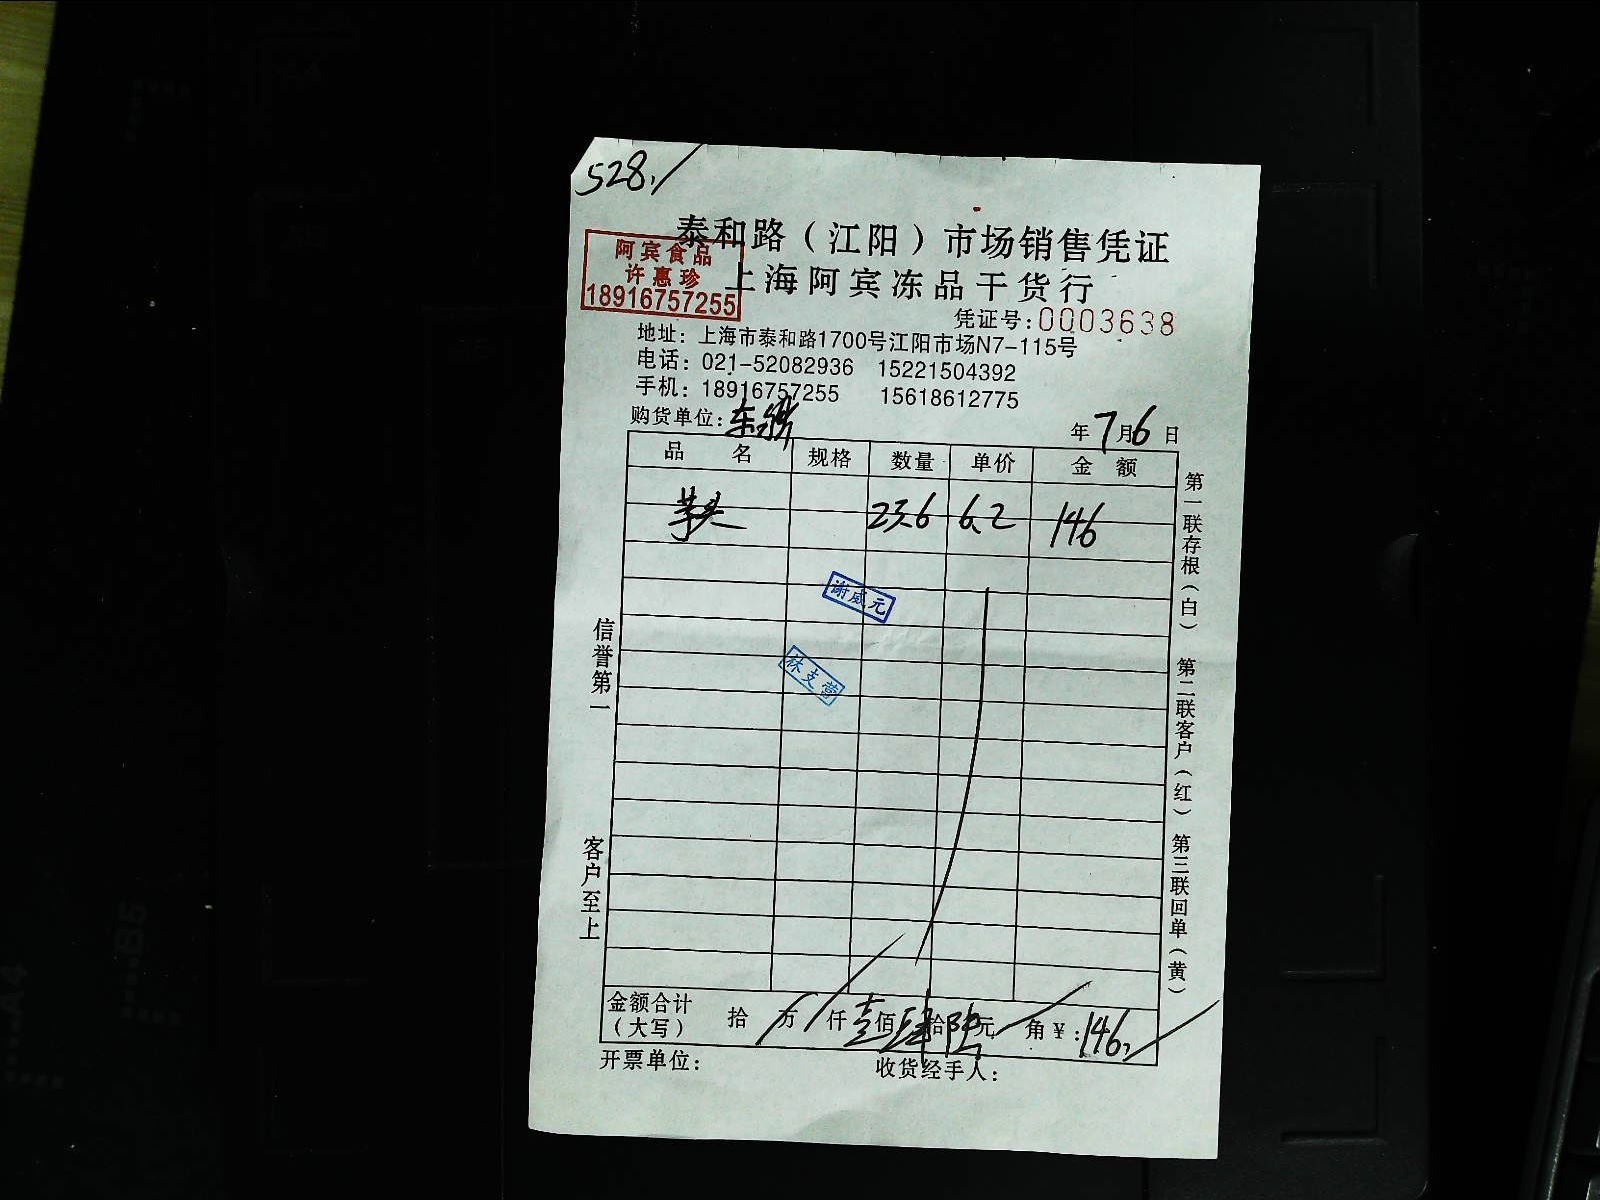 528.
泰和路（江阳）市场销售凭证
阿宾食品
许惠珍
18916757255
上海阿宾冻品干货行
凭证号:0003638
地址：上海市泰和路1700号江阳市场N7-115号
电话：021-52082936 15221504392
手机：18916757255 15618612775
购货单位：东
年7月6日
品名 规格 数量 单价 金额
芋头 23.6 6.2 146
谢威元
林支营
信誉第一
客户至上
第一联存根（白） 第二联客户（红） 第三联回单（黄）
金额合计（大写） 拾 万 仟 壹佰肆拾陆元 角 ¥:146
开票单位： 收货经手人：